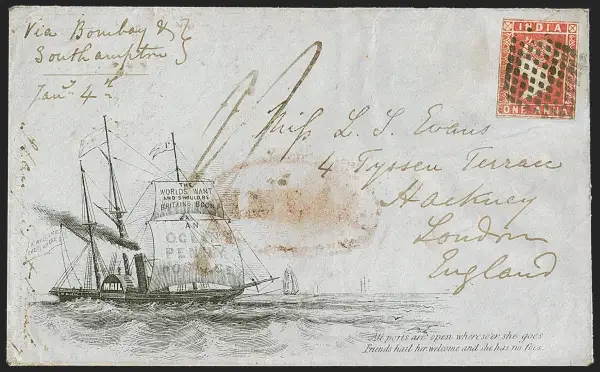 Via Bombay &
Southampton
Jany 4th
INDIA
ONE ANNA
Miss L. S. Evans
4 Tyssen Terrace
Hackney
London
England
THE
WORLDS WANT
AND SHOULD BE
BRITAINS BOON
AN
OCEAN
PENNY
POSTAGE
MAIL
All ports are open wheresoe'er she goes
Friends hail her welcome and she has no foes.